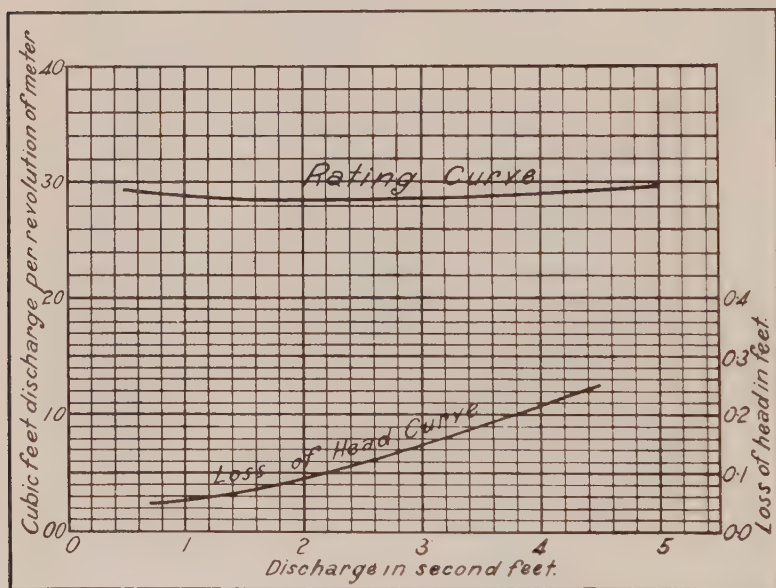 Cubic feet discharge per revolution of meter
4.0
3.0
2.0
1.0
0.0
Rating Curve
Loss of Head Curve
0.4
0.3
0.2
0.1
0.0
Loss of head in feet.
0 1 2 3 4 5
Discharge in second feet.